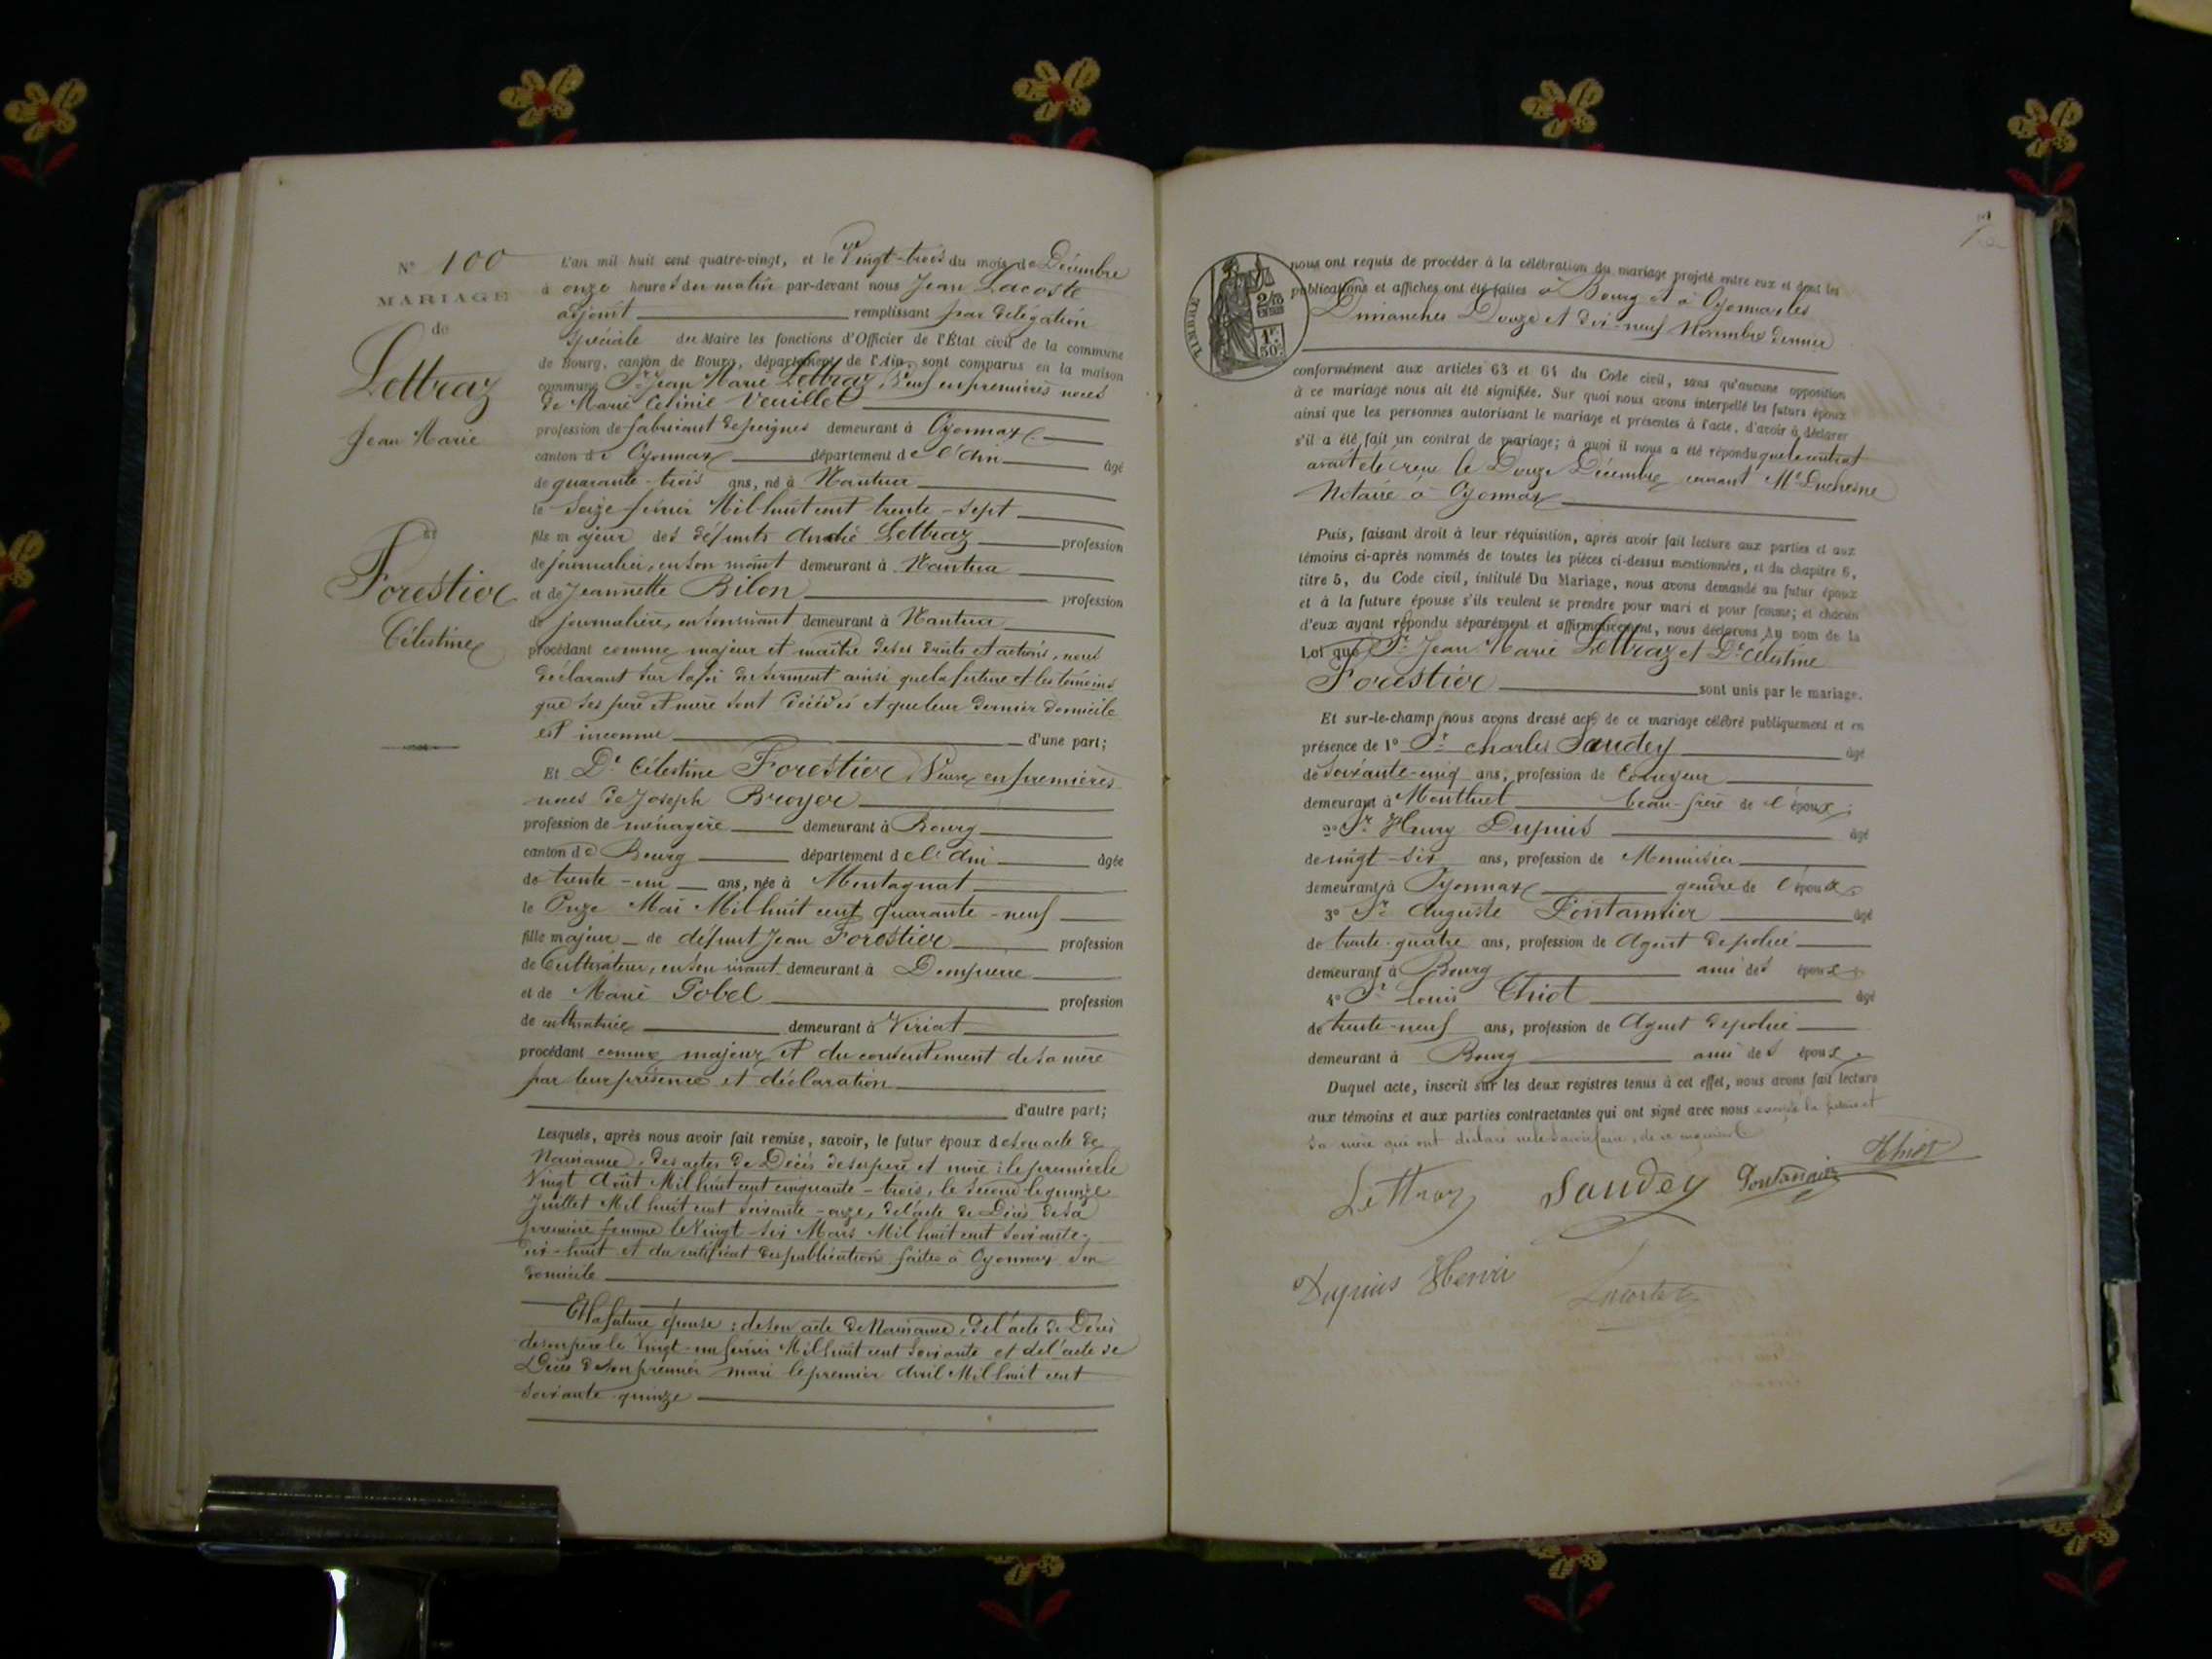 N° 100
MARIAGE
de
Lettraz
Jean Marie
et
Forestier
Célestine
L'an mil huit cent quatre-vingt, et le Vingt-trois du mois de Décembre
à onze heures du matin par-devant nous Jean Lacoste
adjoint remplissant par délégation
spéciale du Maire les fonctions d'Officier de l'État civil de la commune
de Bourg, canton de Bourg, département de l'Ain, sont comparus en la maison
commune Sr Jean Marie Lettraz, Veuf en premières noces
de Marie Célinie Veuillet
profession de fabricant de peignes demeurant à Oyonnax
canton de Oyonnax département de l'Ain âgé
de quarante-trois ans, né à Nantua
le Seize février Mil huit cent trente-sept
fils majeur des défunts André Lettraz profession
de journalier, en son vivant demeurant à Nantua
et de Jeannette Bilon profession
de journalière, en son vivant demeurant à Nantua
procédant comme majeur et maître de ses droits et actions, nous
déclarant sur la foi du serment ainsi que la future et les témoins
que ses père et mère sont décédés et que leur dernier domicile
est inconnu d'une part;
Et De Célestine Forestier, Veuve en premières
noces de Joseph Broyer
profession de ménagère demeurant à Bourg
canton de Bourg département de l'Ain âgée
de trente-un ans, née à Montagnat
le Onze Mai Mil huit cent quarante-neuf
fille majeur de défunt Jean Forestier profession
de Cultivateur, en son vivant demeurant à Dompierre
et de Marie Gobel profession
de cultivatrice demeurant à Viriat
procédant comme majeur et du consentement de sa mère
par leur présence et déclaration
d'autre part;
Lesquels, après nous avoir fait remise, savoir, le futur époux de son acte de
Naissance, des actes de Décès de ses père et mère : le premier le
Vingt Août Mil huit cent cinquante-trois, le second le quinze
Juillet Mil huit cent soixante-onze, de l'acte de Décès de sa
première femme le Vingt-six Mars Mil huit cent soixante-
dix-huit et du certificat des publications faites à Oyonnax son
domicile
Et la future épouse : de son acte de Naissance, de l'acte de Décès
de son père le Vingt-un février Mil huit cent soixante et de l'acte de
Décès de son premier mari le premier Avril Mil huit cent
soixante-quinze
TIMBRE
2/10 EN SUS
1F. 50C.
nous ont requis de procéder à la célébration du mariage projeté entre eux et dont les
publications et affiches ont été faites à Bourg et à Oyonnax les
Dimanches Douze et dix-neuf Novembre dernier
conformément aux articles 63 et 64 du Code civil, sans qu'aucune opposition
à ce mariage nous ait été signifiée. Sur quoi nous avons interpellé les futurs époux
ainsi que les personnes autorisant le mariage et présentes à l'acte, d'avoir à déclarer
s'il a été fait un contrat de mariage; à quoi il nous a été répondu que le contrat
avait été reçu le Douze Décembre courant Me Duchesne
Notaire à Oyonnax
Puis, faisant droit à leur réquisition, après avoir fait lecture aux parties et aux
témoins ci-après nommés de toutes les pièces ci-dessus mentionnées, et du chapitre 6,
titre 5, du Code civil, intitulé Du Mariage, nous avons demandé au futur époux
et à la future épouse s'ils veulent se prendre pour mari et pour femme; et chacun
d'eux ayant répondu séparément et affirmativement, nous déclarons Au nom de la
Loi que Sr Jean Marie Lettraz et De Célestine
Forestier sont unis par le mariage.
Et sur-le-champ nous avons dressé acte de ce mariage célébré publiquement et en
présence de 1° Sr Charles Saudey âgé
de soixante-cinq ans, profession de Corroyeur
demeurant à Montluel beau-frère de l'époux;
2° Sr Henry Dupuis âgé
de vingt-six ans, profession de Menuisier
demeurant à Oyonnax gendre de l'époux
3° Sr Auguste Fontannier âgé
de trente-quatre ans, profession de Agent de police
demeurant à Bourg ami des époux
4° Sr Louis Thiot âgé
de trente-neuf ans, profession de Agent de police
demeurant à Bourg ami des époux.
Duquel acte, inscrit sur les deux registres tenus à cet effet, nous avons fait lecture
aux témoins et aux parties contractantes qui ont signé avec nous excepté la future et
sa mère qui ont déclaré ne le savoir faire, de ce enquis
Lettraz Saudey Fontannier Thiot
Dupuis Henri Lacoste